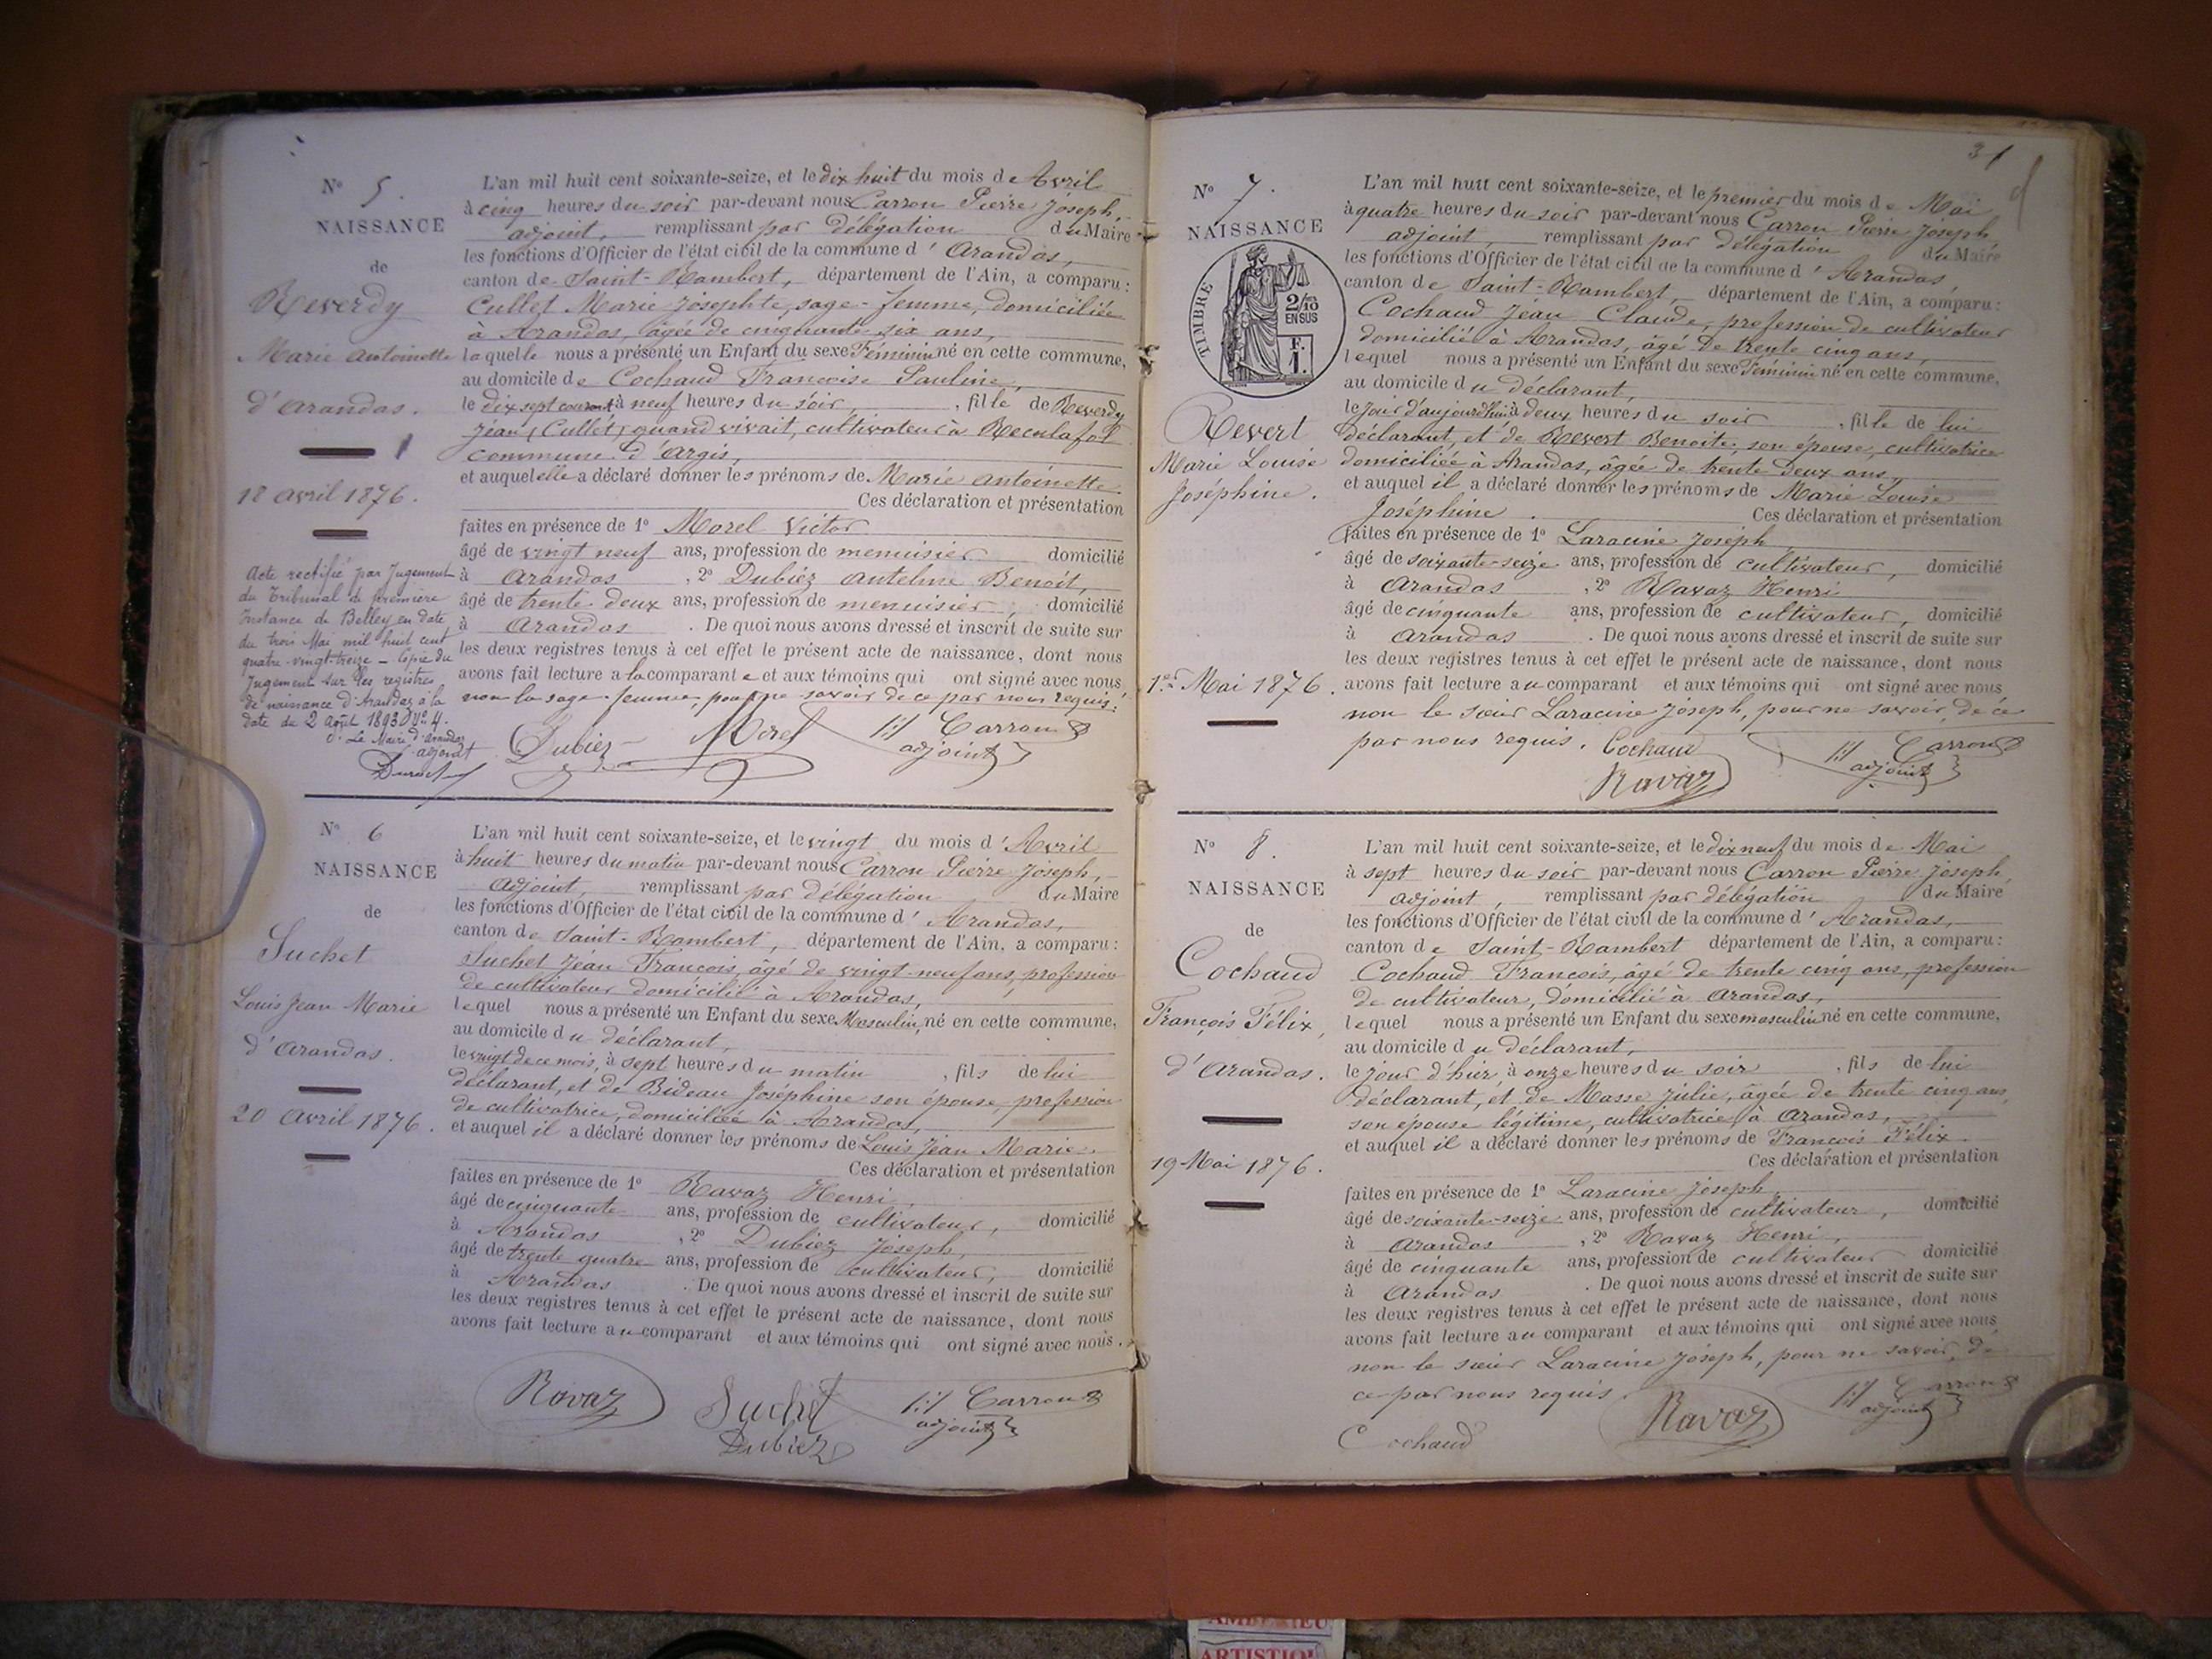 N° 5.
NAISSANCE
de
Reverdy
Marie Antoinette
d'Arandas.
18 Avril 1876.
Acte rectifié par Jugement
du Tribunal de première
Instance de Belley en date
du trois Mai mil huit cent
quatre-vingt-treize – Copie du
Jugement sur les registres
de naissance d'Arandas à la
date du 2 Août 1893 N° 4.
Le Maire d'Arandas
adjoint
L'an mil huit cent soixante-seize, et le dix huit du mois de Avril
à cinq heures du soir par-devant nous Carron Pierre Joseph,
adjoint, remplissant par délégation du Maire
les fonctions d'Officier de l'état civil de la commune d'Arandas,
canton de Saint-Rambert, département de l'Ain, a comparu :
Cullet Marie Josephte, sage-femme, domiciliée
à Arandas, âgée de cinquante six ans,
laquelle nous a présenté un Enfant du sexe Féminin né en cette commune,
au domicile de Cochaud Françoise Pauline,
le dix sept courant à neuf heures du soir, fille de Reverdy
Jean (Cullet) quand vivait, cultivateur à Reculafol
commune d'Argis,
et auquel elle a déclaré donner les prénoms de Marie Antoinette
Ces déclaration et présentation
faites en présence de 1° Morel Victor
âgé de vingt neuf ans, profession de menuisier domicilié
à Arandas, 2° Dubiez Antelme Benoit,
âgé de trente deux ans, profession de menuisier, domicilié
à Arandas. De quoi nous avons dressé et inscrit de suite sur
les deux registres tenus à cet effet le présent acte de naissance, dont nous
avons fait lecture a la comparante et aux témoins qui ont signé avec nous,
non la sage-femme, pour ne savoir de ce par nous requis.
Dubiez Morel Carron
adjoint
N° 6
NAISSANCE
de
Suchet
Louis Jean Marie
d'Arandas.
20 Avril 1876.
L'an mil huit cent soixante-seize, et le vingt du mois d'Avril
à huit heures du matin par-devant nous Carron Pierre Joseph,
adjoint, remplissant par délégation du Maire
les fonctions d'Officier de l'état civil de la commune d'Arandas,
canton de Saint-Rambert, département de l'Ain, a comparu :
Suchet Jean François, âgé de vingt-neuf ans, profession
de cultivateur domicilié à Arandas,
lequel nous a présenté un Enfant du sexe Masculin, né en cette commune,
au domicile du déclarant,
le vingt de ce mois, à sept heures du matin, fils de lui
déclarant, et de Bideau Joséphine son épouse, profession
de cultivatrice, domiciliée à Arandas,
et auquel il a déclaré donner les prénoms de Louis Jean Marie.
Ces déclaration et présentation
faites en présence de 1° Ravaz Henri,
âgé de cinquante ans, profession de cultivateur, domicilié
à Arandas, 2° Dubiez Joseph,
âgé de trente quatre ans, profession de cultivateur, domicilié
à Arandas. De quoi nous avons dressé et inscrit de suite sur
les deux registres tenus à cet effet le présent acte de naissance, dont nous
avons fait lecture au comparant et aux témoins qui ont signé avec nous.
Ravaz Suchet Carron
Dubiez adjoint
31
N° 7.
NAISSANCE
TIMBRE
2/10 EN SUS
F. 1.
Revert
Marie Louise
Joséphine.
1er Mai 1876.
L'an mil huit cent soixante-seize, et le premier du mois de Mai
à quatre heures du soir par-devant nous Carron Pierre Joseph
adjoint, remplissant par délégation du Maire
les fonctions d'Officier de l'état civil de la commune d'Arandas,
canton de Saint-Rambert, département de l'Ain, a comparu :
Cochaud Jean Claude, profession de cultivateur
domicilié à Arandas, âgé de trente cinq ans,
lequel nous a présenté un Enfant du sexe Féminin né en cette commune,
au domicile du déclarant,
le jour d'aujourd'hui à deux heures du soir, fille de lui
déclarant, et de Revert Benoite, son épouse, cultivatrice
domiciliée à Arandas, âgée de trente deux ans,
et auquel il a déclaré donner les prénoms de Marie Louise
Joséphine. Ces déclaration et présentation
faites en présence de 1° Laracine Joseph
âgé de soixante-seize ans, profession de cultivateur, domicilié
à Arandas, 2° Ravaz Henri
âgé de cinquante ans, profession de cultivateur, domicilié
à Arandas. De quoi nous avons dressé et inscrit de suite sur
les deux registres tenus à cet effet le présent acte de naissance, dont nous
avons fait lecture au comparant et aux témoins qui ont signé avec nous
non le sieur Laracine Joseph, pour ne savoir, de ce
par nous requis. Cochaud Carron
Ravaz adjoint
N° 8.
NAISSANCE
de
Cochaud
François Félix,
d'Arandas.
19 Mai 1876.
L'an mil huit cent soixante-seize, et le dix neuf du mois de Mai
à sept heures du soir par-devant nous Carron Pierre Joseph,
adjoint, remplissant par délégation du Maire
les fonctions d'Officier de l'état civil de la commune d'Arandas,
canton de Saint-Rambert département de l'Ain, a comparu :
Cochaud François, âgé de trente cinq ans, profession
de cultivateur, domicilié à Arandas,
lequel nous a présenté un Enfant du sexe masculin né en cette commune,
au domicile du déclarant,
le jour d'hier, à onze heures du soir, fils de lui
déclarant, et de Masse Julie, âgée de trente cinq ans,
son épouse légitime, cultivatrice, à Arandas,
et auquel il a déclaré donner les prénoms de François Félix
Ces déclaration et présentation
faites en présence de 1° Laracine Joseph
âgé de soixante-seize ans, profession de cultivateur, domicilié
à Arandas, 2° Ravaz Henri,
âgé de cinquante ans, profession de cultivateur domicilié
à Arandas. De quoi nous avons dressé et inscrit de suite sur
les deux registres tenus à cet effet le présent acte de naissance, dont nous
avons fait lecture au comparant et aux témoins qui ont signé avec nous
non le sieur Laracine Joseph, pour ne savoir, de
ce par nous requis. Ravaz Carron
Cochaud adjoint
ARTISTIQU